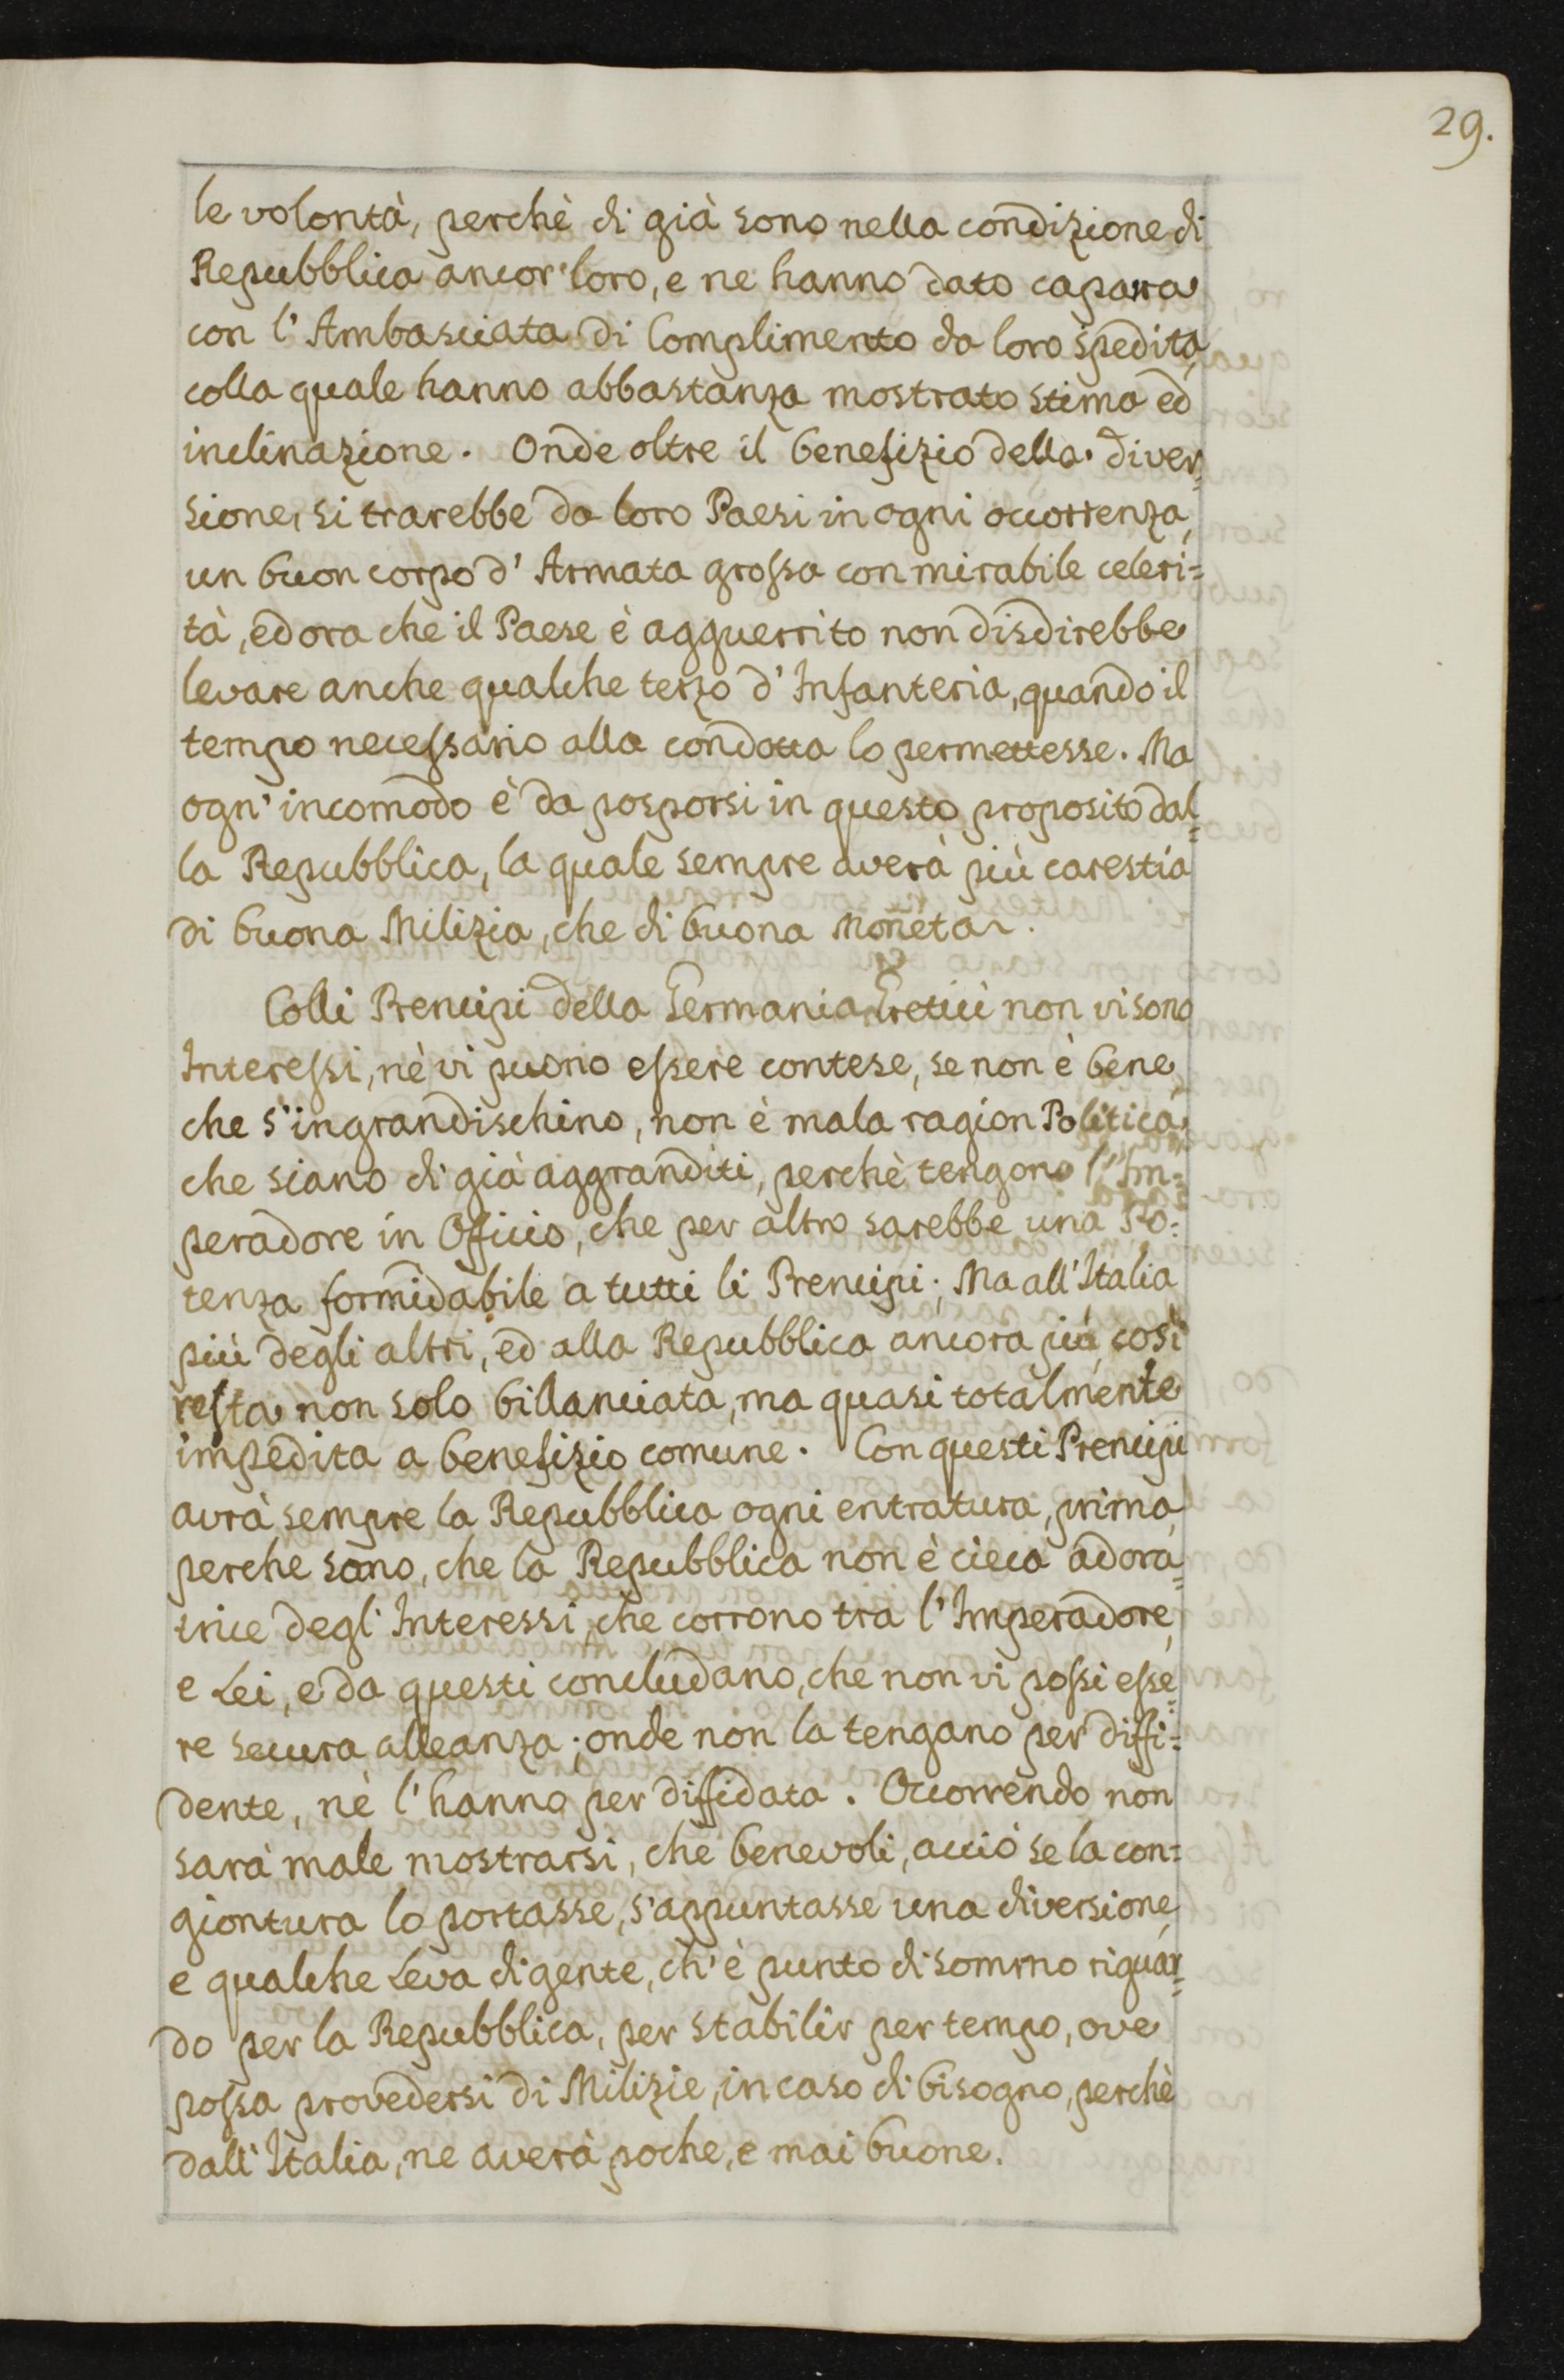 29.
le volontà, perchè di già sono nella condizione di
Repubblica ancor' loro, e ne hanno dato caparra
con l' Ambasciata di Complimento da loro spedita,
colla quale hanno abbastanza mostrato stima ed
inclinazione. Onde oltre il benefizio della diver=
sione, si trarebbe da loro Paesi in ogni occorrenza,
un buon corpo d' Armata grossa con mirabile celeri=
tà, ed ora che il Paese è agguerrito non disdirebbe
levare anche qualche terzo d' Infanteria, quando il
tempo necessario alla condotta lo permettesse. Ma
ogn' incomodo è da posporsi in questo proposito dal=
la Repubblica, la quale sempre averà più carestia
di buona Milizia, che di buona Moneta.
Colli Prencipi della Germania Eretici non vi sono
Interessi, nè vi puono essere contese, se non è bene
che s' ingrandischino, non è mala ragion Politica,
che siano di già aggranditi, perchè tengono l' Im=
peradore in Officio, che per altro sarebbe una Po=
tenza formidabile a tutti li Prencipi; Ma all' Italia
più degli altri, ed alla Repubblica ancora più, così
resta non solo billanciata, ma quasi totalmente
impedita a benefizio comune. Con questi Prencipi
avrà sempre la Repubblica ogni entratura, prima,
perche sano, che la Repubblica non è cieca adora=
trice degl' Interessi, che corrono tra l' Imperadore,
e Lei, e da questi concludano, che non vi possi esse=
re secura alleanza; onde non la tengano per diffi=
dente, nè l' hanno per diffidata. Occorrendo non
sarà male mostrarsi, che benevoli, acciò se la con=
giontura lo portasse, s' appuntasse una diversione,
e qualche Leva di gente, ch' è punto di sommo riguar=
do per la Repubblica, per stabilir per tempo, ove
possa provedersi di Milizie, in caso di bisogno, perchè
dall' Italia, ne averà poche, e mai buone.